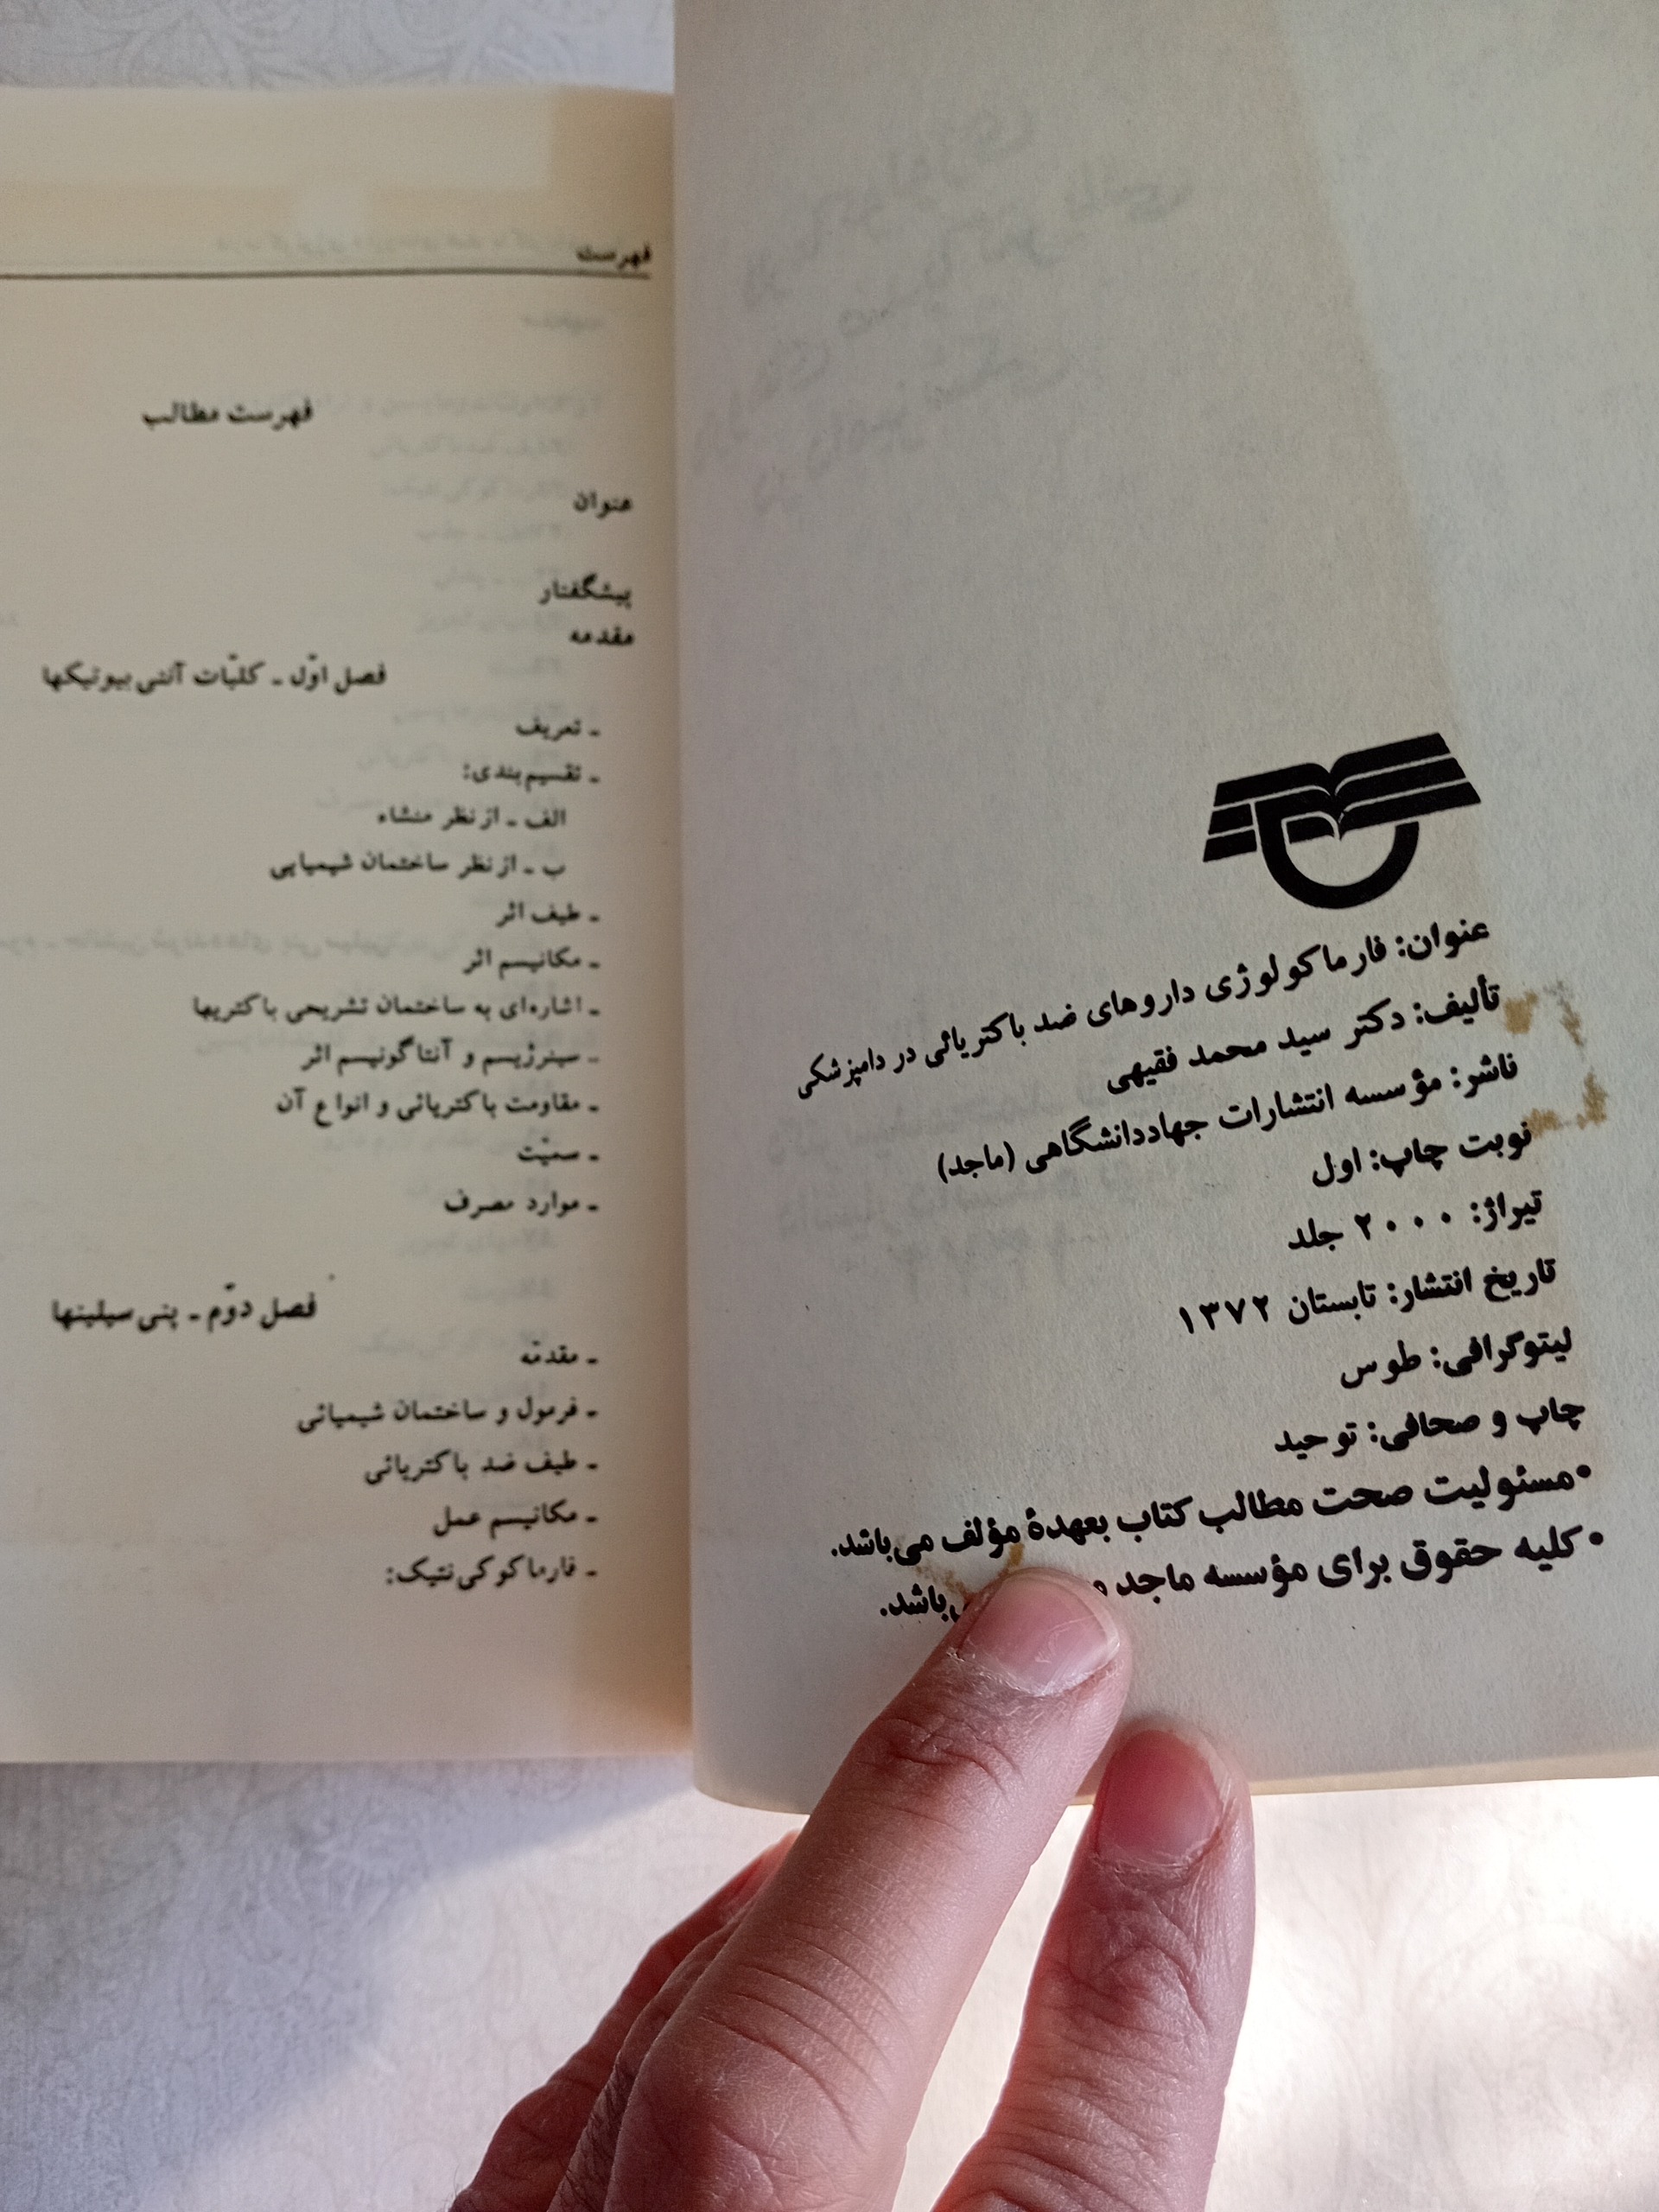 عنوان: فارماکولوژی داروهای ضد باکتریائی در دامپزشکی
تألیف: دکتر سید محمد فقیهی
ناشر: مؤسسه انتشارات جهاددانشگاهی (ماجد)
نوبت چاپ: اول
تیراژ: ۲۰۰۰ جلد
تاریخ انتشار: تابستان ۱۳۷۲
لیتوگرافی: طوس
چاپ و صحافی: توحید
•مسئولیت صحت مطالب کتاب بعهدهٔ مؤلف می‌باشد.
•کلیه حقوق برای مؤسسه ماجد باشد.
فهرست
فهرست مطالب
عنوان
پیشگفتار
مقدمه
فصل اوّل ـ کلیّات آنتی‌بیوتیکها
ـ تعریف
ـ تقسیم‌بندی:
الف ـ از نظر منشاء
ب ـ از نظر ساختمان شیمیایی
ـ طیف اثر
ـ مکانیسم اثر
ـ اشاره‌ای به ساختمان تشریحی باکتریها
ـ سینرژیسم و آنتاگونیسم اثر
ـ مقاومت باکتریائی و انواع آن
ـ سمیّت
ـ موارد مصرف
فصل دوّم ـ پنی‌سیلینها
ـ مقدمّه
ـ فرمول و ساختمان شیمیائی
ـ طیف ضد باکتریائی
ـ مکانیسم عمل
ـ فارماکوکی‌نتیک: